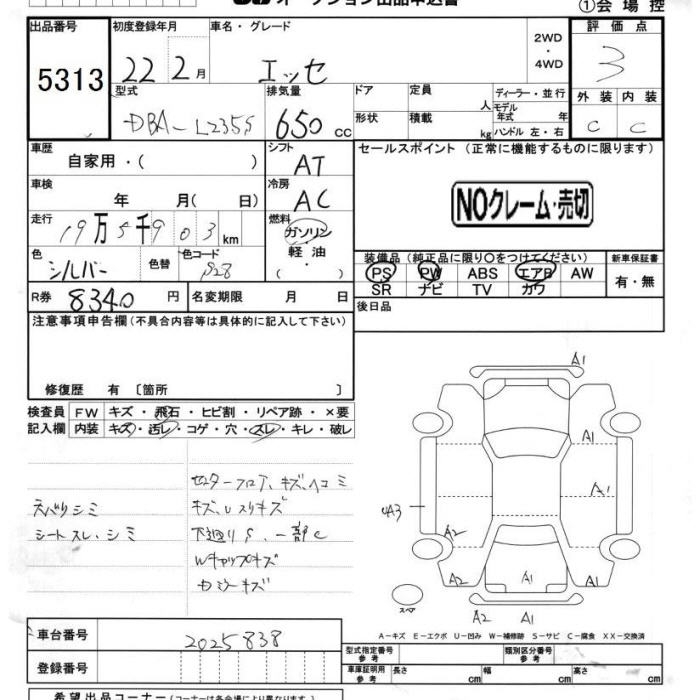 オークション出品申込書
①会場控
出品番号 初度登録年月 車名・グレード 2WD・4WD 評価点
5313 22 2月 エッセ 3
型式 排気量 ドア 定員 人 ディーラー・並行 外装 内装
DBA-L235S 650 CC 形状 積載 kg モデル年式 年 ハンドル 左・右 C C
車歴 自家用・( ) シフト AT セールスポイント (正常に機能するものに限ります)
車検 年 月( 日) 冷房 AC
NOクレーム・売切
走行 19万5千903km 燃料 ガソリン・軽油・
色 シルバー 色替 色コード S28
装備品 (純正品に限り○をつけてください) 新車保証書
PS PW ABS エアB AW 有・無
SR ナビ TV カワ
R券 8340円 名変期限 月 日 後日品
注意事項申告欄(不具合内容等は具体的に記入して下さい)
修復歴 有 〔箇所 〕
検査員 FW キズ・飛石・ヒビ割・リペア跡・×要
記入欄 内装 キズ・汚レ・コゲ・穴・スレ・キレ・破レ
センターフロア、キズ、ヘコミ
天バリシミ キズ、Uスリキズ
シートスレ・シミ 下廻りS、一部C
Wキャップキズ
カミラーキズ
A1
A1
A1
A3
A2
A2 A1 A1
スペア
A2 A1
A-キズ E-エクボ U-凹み W-補修跡 S-サビ C-腐食 XX-交換済
車台番号 2025838
登録番号
型式指定番号 参考 類別区分番号 参考
車庫証明用 参考 長さ cm 幅 cm 高さ cm
希望出品コーナー(コーナーは各会場により異なります。)